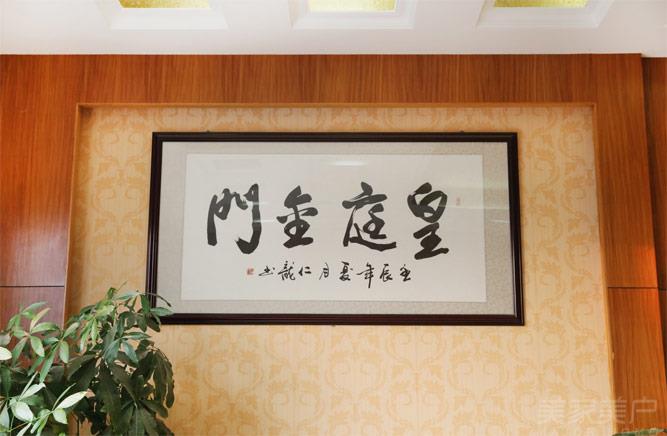 皇庭金門
壬辰年夏月仁龍书
美家美户